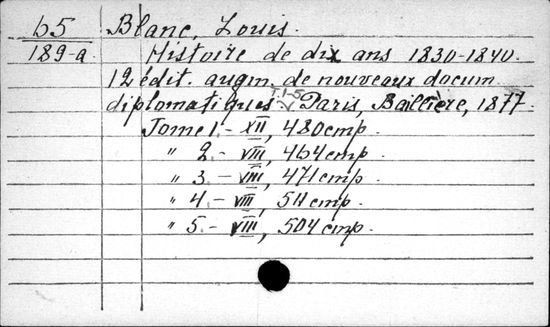 65 Blanc, Louis.
189-a Histoire de dix ans 1830-1840.
12 édit. augm. de nouveaux docum.
diplomatiques. T. 1-5. Paris, Baillière, 1877.
Tome 1.- XII, 480 стр.
" 2.- VIII, 464 стр.
" 3.- VIII, 471 стр.
" 4.- VII, 511 стр.
" 5.- VIII, 504 стр.